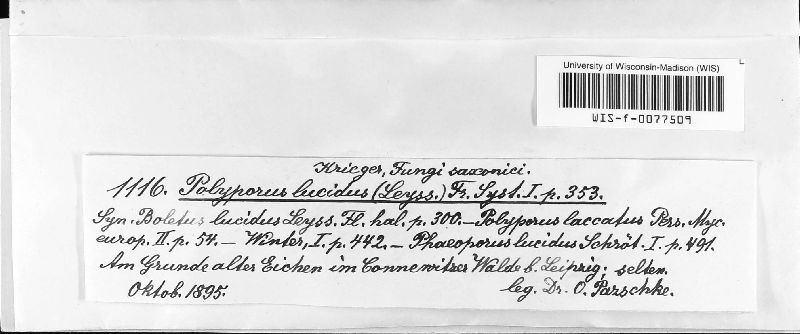 University of Wisconsin-Madison (WIS)
WIS-f-0077509
Krieger, Fungi saxonici.
1116. Polyporus lucidus (Leyss.) Fr. Syst. I. p. 353.
Syn. Boletus lucidus Leyss. Fl. hal. p. 300. – Polyporus laccatus Pers. Myc.
europ. II. p. 54. – Winter, I. p. 442. – Phaeoporus lucidus Schröt. I. p. 491.
Am Grunde alter Eichen im Connewitzer Walde b. Leipzig; selten.
Oktob. 1895. leg. Dr. O. Pazschke.